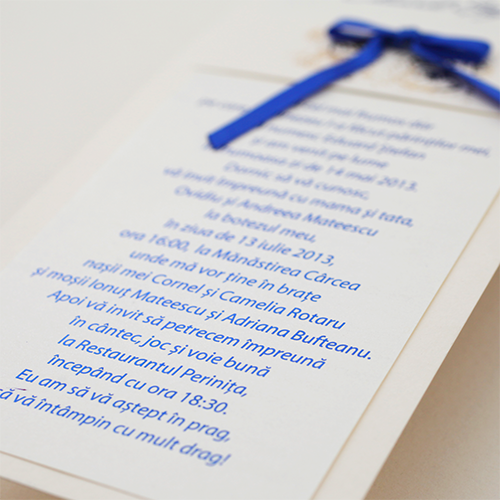 părinților mei,
numesc Eduard Ștefan
și am venit pe lume
și de 14 mai 2013.
Doresc să vă cunosc,
vă invit împreună cu mama și tata,
Ovidiu și Andreea Mateescu
la botezul meu,
în ziua de 13 iulie 2013,
ora 16:00, la Mănăstirea Cârcea
unde mă vor ține în brațe
nașii mei Cornel și Camelia Rotaru
și moșii Ionuț Mateescu și Adriana Bufteanu.
Apoi vă invit să petrecem împreună
în cântec, joc și voie bună
la Restaurantul Perinița,
începând cu ora 18:30.
Eu am să vă aștept în prag,
să vă întâmpin cu mult drag!